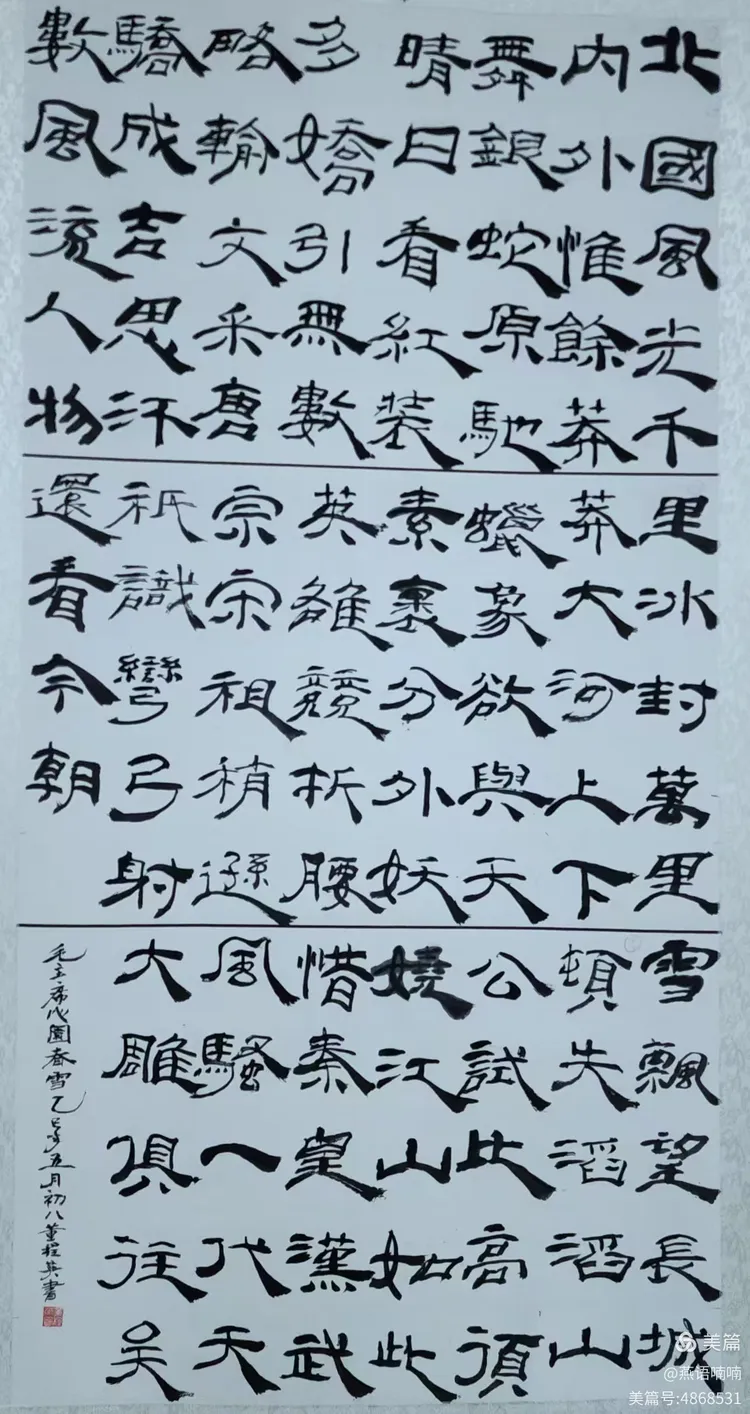 北國風光千里冰封萬里雪飄望長城
內外惟餘莽莽大河上下頓失滔滔山
舞銀蛇原馳蠟象欲與天公試比高須
晴日看紅裝素裹分外妖嬈江山如此
多嬌引無數英雄競折腰惜秦皇漢武
略輸文采唐宗宋祖稍遜風騷一代天
驕成吉思汗祇識彎弓射大雕俱往矣
數風流人物還看今朝
毛主席沁園春雪乙巳年五月初八董程英書
美篇
@燕语喃喃
美篇号:4868531